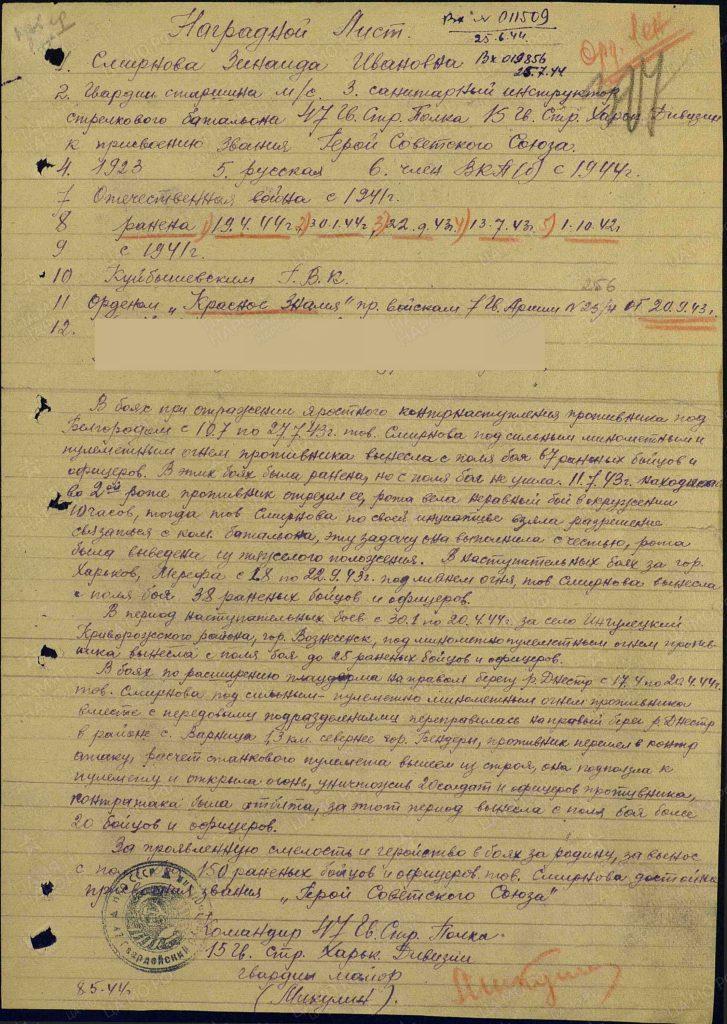 Наградной Лист.
Вх № 011509
25.6.44
Вх 019856
25.7.44
Орд. Лен
1. Смирнова Зинаида Ивановна
2. Гвардии старшина м/с. 3. санитарный инструктор
стрелкового батальона 47 Гв. Стр. Полка 15 Гв. Стр. Харьк Дивизии
к присвоению звания Герой Советского Союза.
4. 1923 5. русская 6. член ВКП(б) с 1944г.
7 Отечественная война с 1941г.
8 ранена 1) 19.4.44г. 2) 30.1.44г. 3) 22.9.43г. 4) 13.7.43г. 5) 1.10.42г.
9 с 1941г.
10 Куйбышевским Г.В.К.
256
11 Орденом „Красное Знамя" пр. войскам 7 Гв. Армии № 23/н от 20.9.43г.
12.
В боях при отражении яростного контрнаступления противника под
Белгородом с 10.7 по 27.7.43г. тов. Смирнова под сильным минометным и
пулеметным огнем противника вынесла с поля боя 67 раненых бойцов и
офицеров. В этих боях была ранена, но с поля боя не ушла. 11.7.43г. находясь
во 2ой роте противник отрезал ее, рота вела неравный бой в окружении
10 часов, тогда тов Смирнова по своей инициативе взяла разрешение
связаться с ком. батальона, эту задачу она выполнила с честью, рота
была выведена из тяжелого положения. В наступательных боях за гор.
Харьков, Мерефа с 18 по 22.9.43г. под ливнем огня, тов Смирнова вынесла
с поля боя 38 раненых бойцов и офицеров.
В период наступательных боев с 30.1 по 20.4.44г. за село Ингулецкий
Криворожского района, гор. Вознесенск, под минометно пулеметным огнем против-
ника вынесла с поля боя до 25 раненых бойцов и офицеров.
В боях по расширению плацдарма на правом берегу р. Днестр с 17.4 по 20.4.44г.
тов. Смирнова под сильным- пулеметно минометным огнем противника
вместе с передовыми подразделениями переправилась на правый берег р. Днестр
в районе с. Варница 1,3 км. севернее гор. Бендеры, противник перешел в контр
атаку, расчет станкового пулемета вышел из строя, она подползла к
пулемету и открыла огонь, уничтожив 20 солдат и офицеров противника,
контратака была отбита, за этот период вынесла с поля боя более
20 бойцов и офицеров.
За проявленную смелость и геройство в боях за родину, за вынос
с по 150 раненых бойцов и офицеров тов. Смирнова достойна
присвоения звания „Герой Советского Союза"
Командир 47 Гв. Стр. Полка
15 Гв. Стр. Харьк. Дивизии
гвардии майор
(Микулин).
8.5.44г.